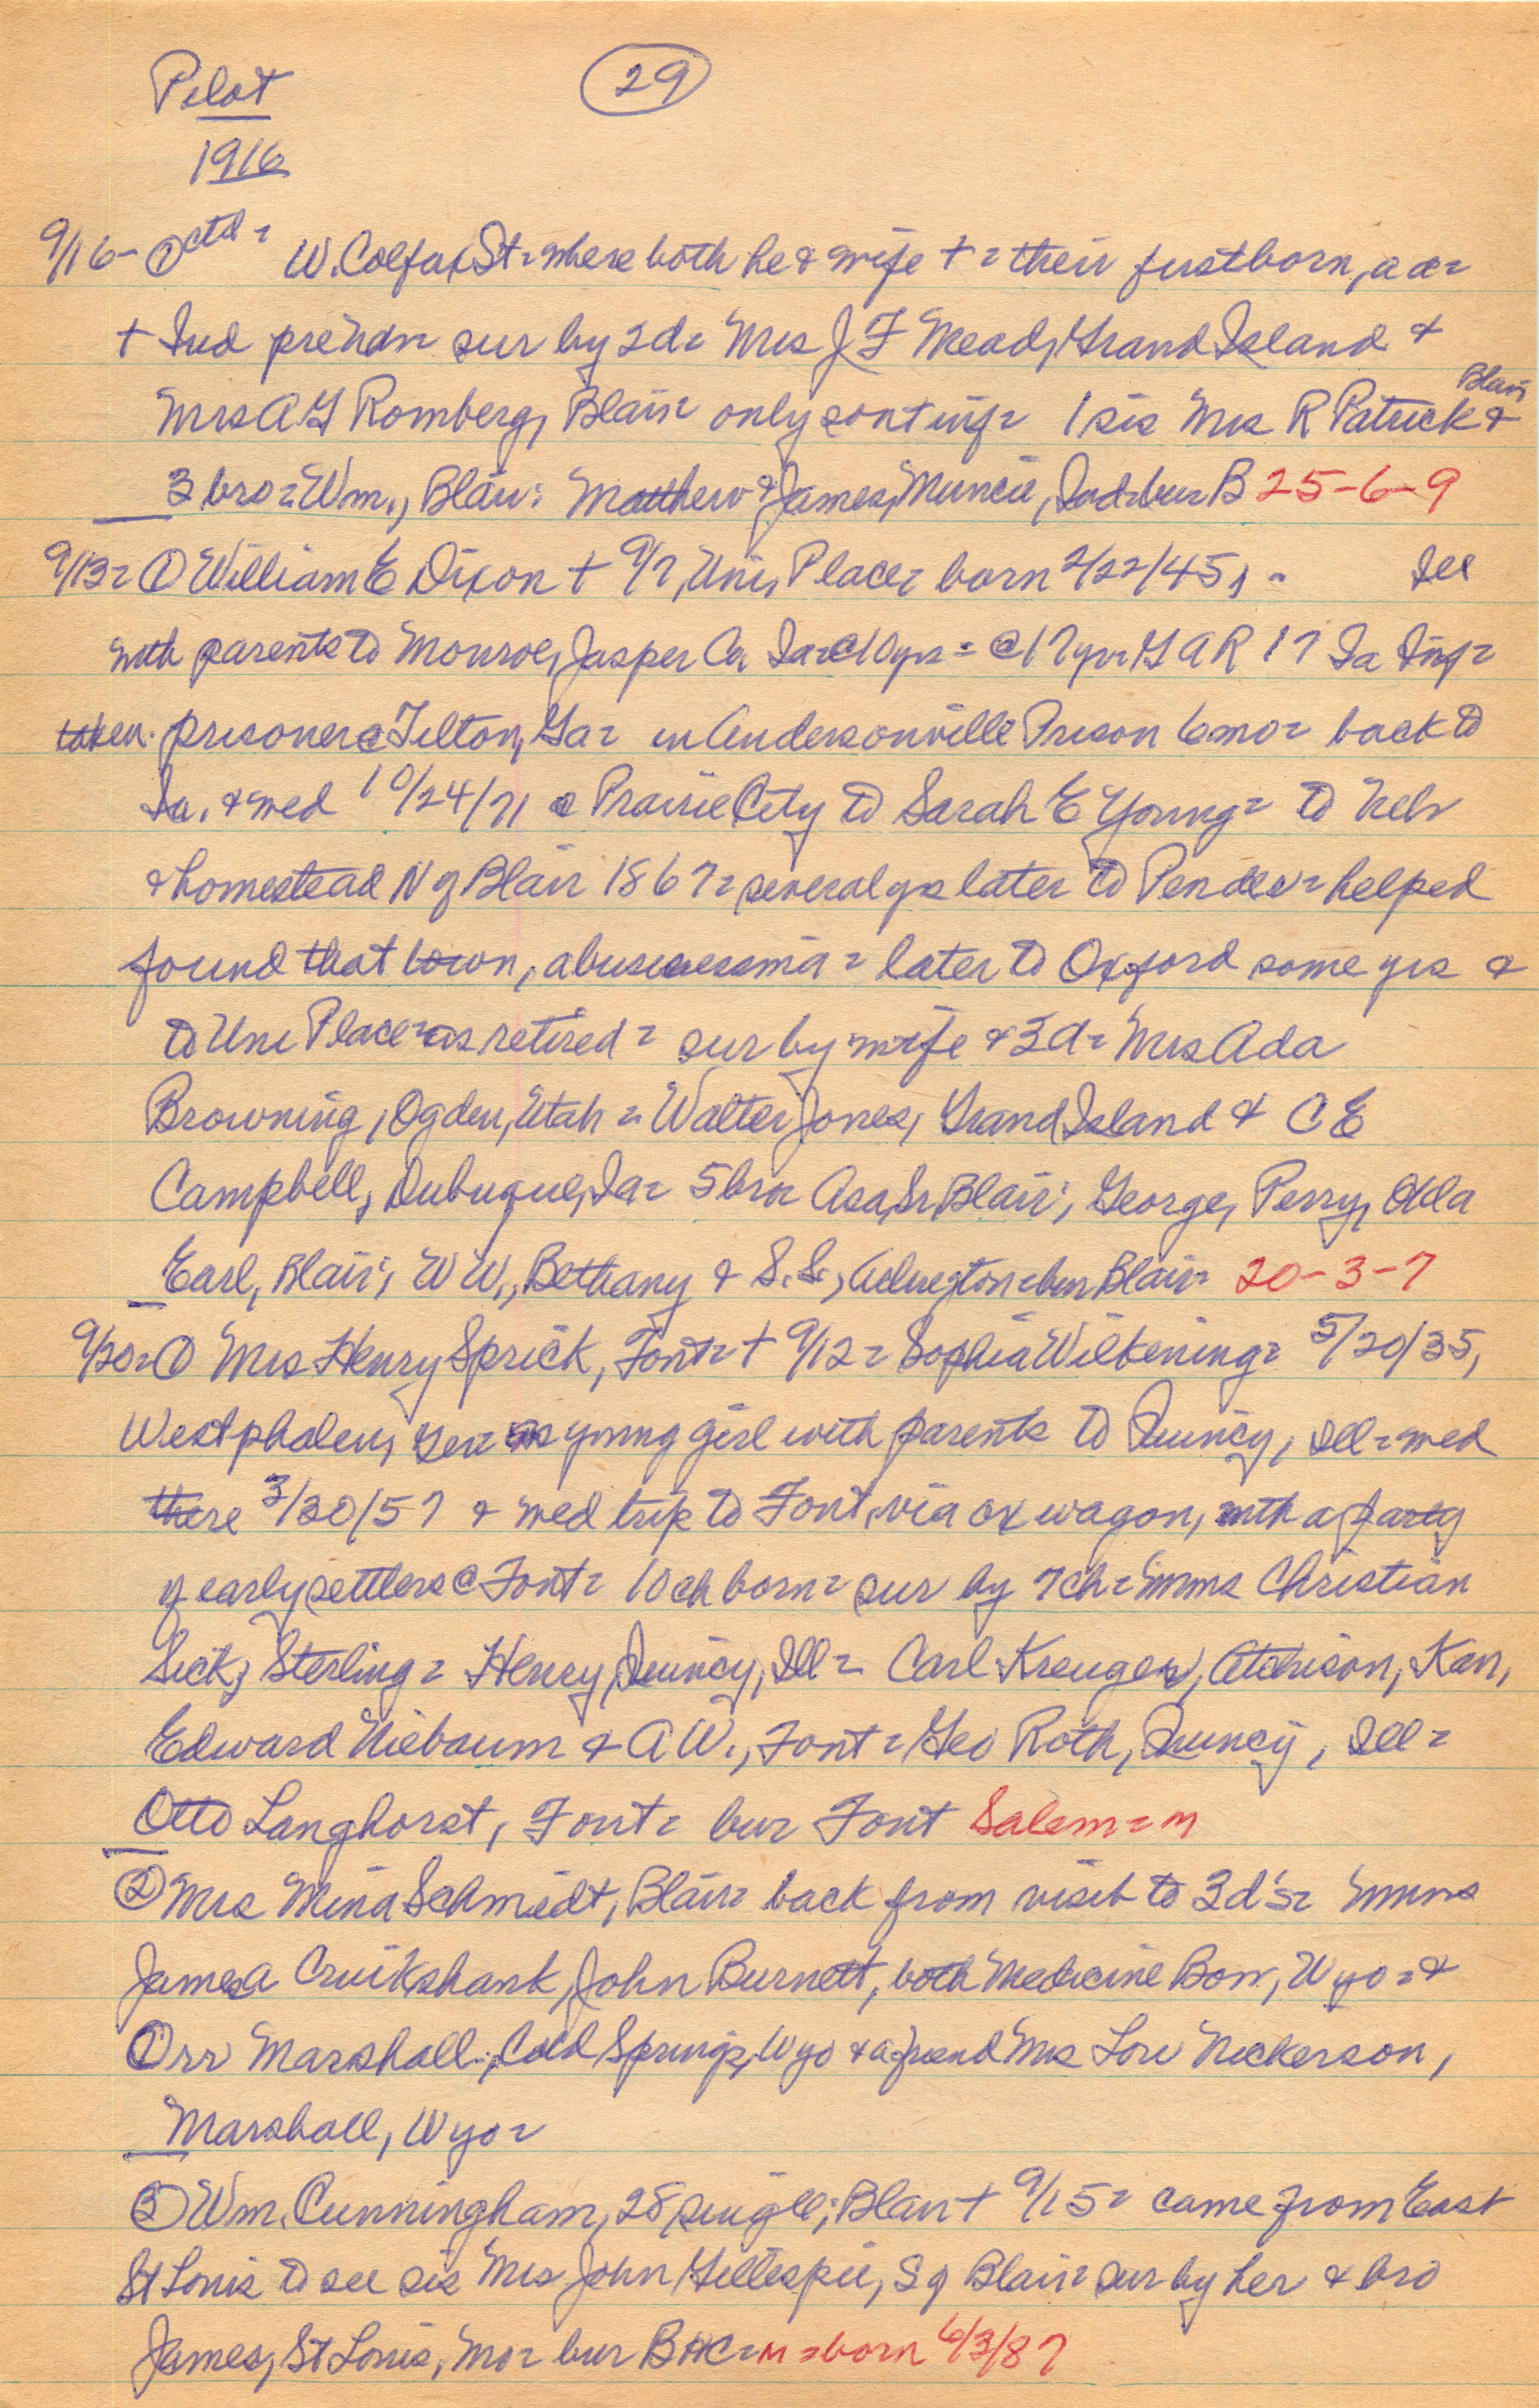 Pilot
29
1916
9/16- ① ctd= W. Colfax St= where both he & wife + = their firstborn, a d=
+ Ind pre Ndn= sur by 2d= Mrs J F Mead, Grand Island &
Mrs A G Romberg, Blair= only son + inf= 1 sis Mrs R Patrick Blair &
3 bro= Wm., Blair: Matthew & James, Muncie, Ind= bur B 25-6-9
9/13= ① William E Dixon + 9/7, Uni, Place= born 2/22/45, = Ill
with parents to Monroe, Jasper Co. Ia= @10yrs = @17yr= GAR 17 Ia Inf=
taken prisoner @ Tilton, Ga= in Andersonville Prison 6mo= back to
Ia. & wed 10/24/71 @ Prairie City to Sarah E Young= to Neb
& homestead N of Blair 1867= several yrs later to Pender= helped
found that town, a businessma = later to Oxford some yrs &
to Uni Place= as retired= sur by wife & 3d= Mrs Ada
Browning, Ogden, Utah = Walter Jones, Grand Island & C E
Campbell, Dubuque, Ia= 5bro= Asa, Sr Blair; George, Perry, Okla
Earl, Blair; W W., Bethany & S. S., = bur Blair= 20-3-7
9/20= ① Mrs Henry Sprick, Font= + 9/12 = Sophia Wilkening= 5/20/35,
Westphalen, Ger= as young girl with parents to Quincy, Ill= wed
there 3/30/57 & wed trip to Font, via ox wagon, with a party
of early settlers @ Font= 10 ch born= sur by 7ch= Mmms Christian
Sick, Sterling= Henry, Quincy, Ill= Carl Kreuger, Atchison, Kan,
Edward Niebaum & A W., Font= Geo Roth, Quincy, Ill=
Otto Langhorst, Font= bur Font Salem= M
② Mrs Mina Schmidt, Blair= back from visit to 3d's= Mmms
James A Cruikshank, John Burnett, both Medicine Bow, Wyo= &
Orr Marshall., Cold Springs, Wyo & a friend Mrs Lori Nickerson,
Marshall, Wyo=
③ Wm. Cunningham, 28 single; Blair + 9/15= came from East
St Louis to see sis Mrs John Gillespie, S of Blair= sur by her & bro
James, St Louis, Mo= bur B HC= M = born 6/3/87